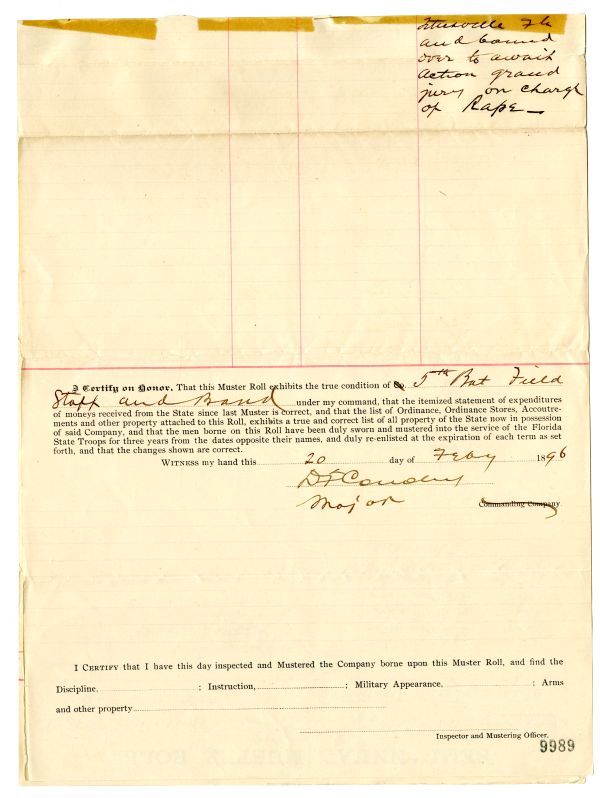 Titusville Fla
and bound
over to await
action grand
jury on charge
of Rape—
I Certify on Honor, That this Muster Roll exhibits the true condition of Co. 5th Bat Field
Staff and Band under my command, that the itemized statement of expenditures
of moneys received from the State since last Muster is correct, and that the list of Ordinance, Ordinance Stores, Accoutre-
ments and other property attached to this Roll, exhibits a true and correct list of all property of the State now in possession
of said Company, and that the men borne on this Roll have been duly sworn and mustered into the service of the Florida
State Troops for three years from the dates opposite their names, and duly re-enlisted at the expiration of each term as set
forth, and that the changes shown are correct.
WITNESS my hand this 20 day of Feby 1896
Major Commanding Company.
I CERTIFY that I have this day inspected and Mustered the Company borne upon this Muster Roll, and find the
Discipline, ; Instruction, ; Military Appearance, ; Arms
and other property
Inspector and Mustering Officer.
9989